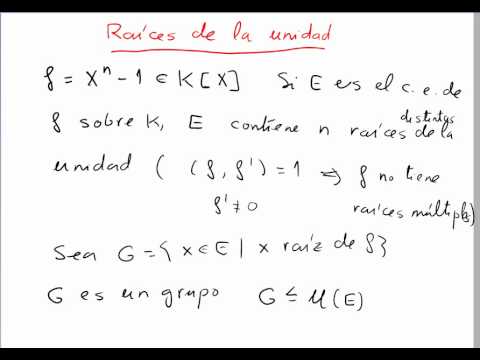 Raíces de la unidad
f = Xⁿ - 1 ∈ K[X] Si E es el c. e. de
distintas
f sobre K, E contiene n raíces de la
unidad ( (f, f') = 1 ⇒ f no tiene
f' ≠ 0 raíces múltiples)
Sea G = { x ∈ E | x raíz de f }
G es un grupo G ≤ U(E)